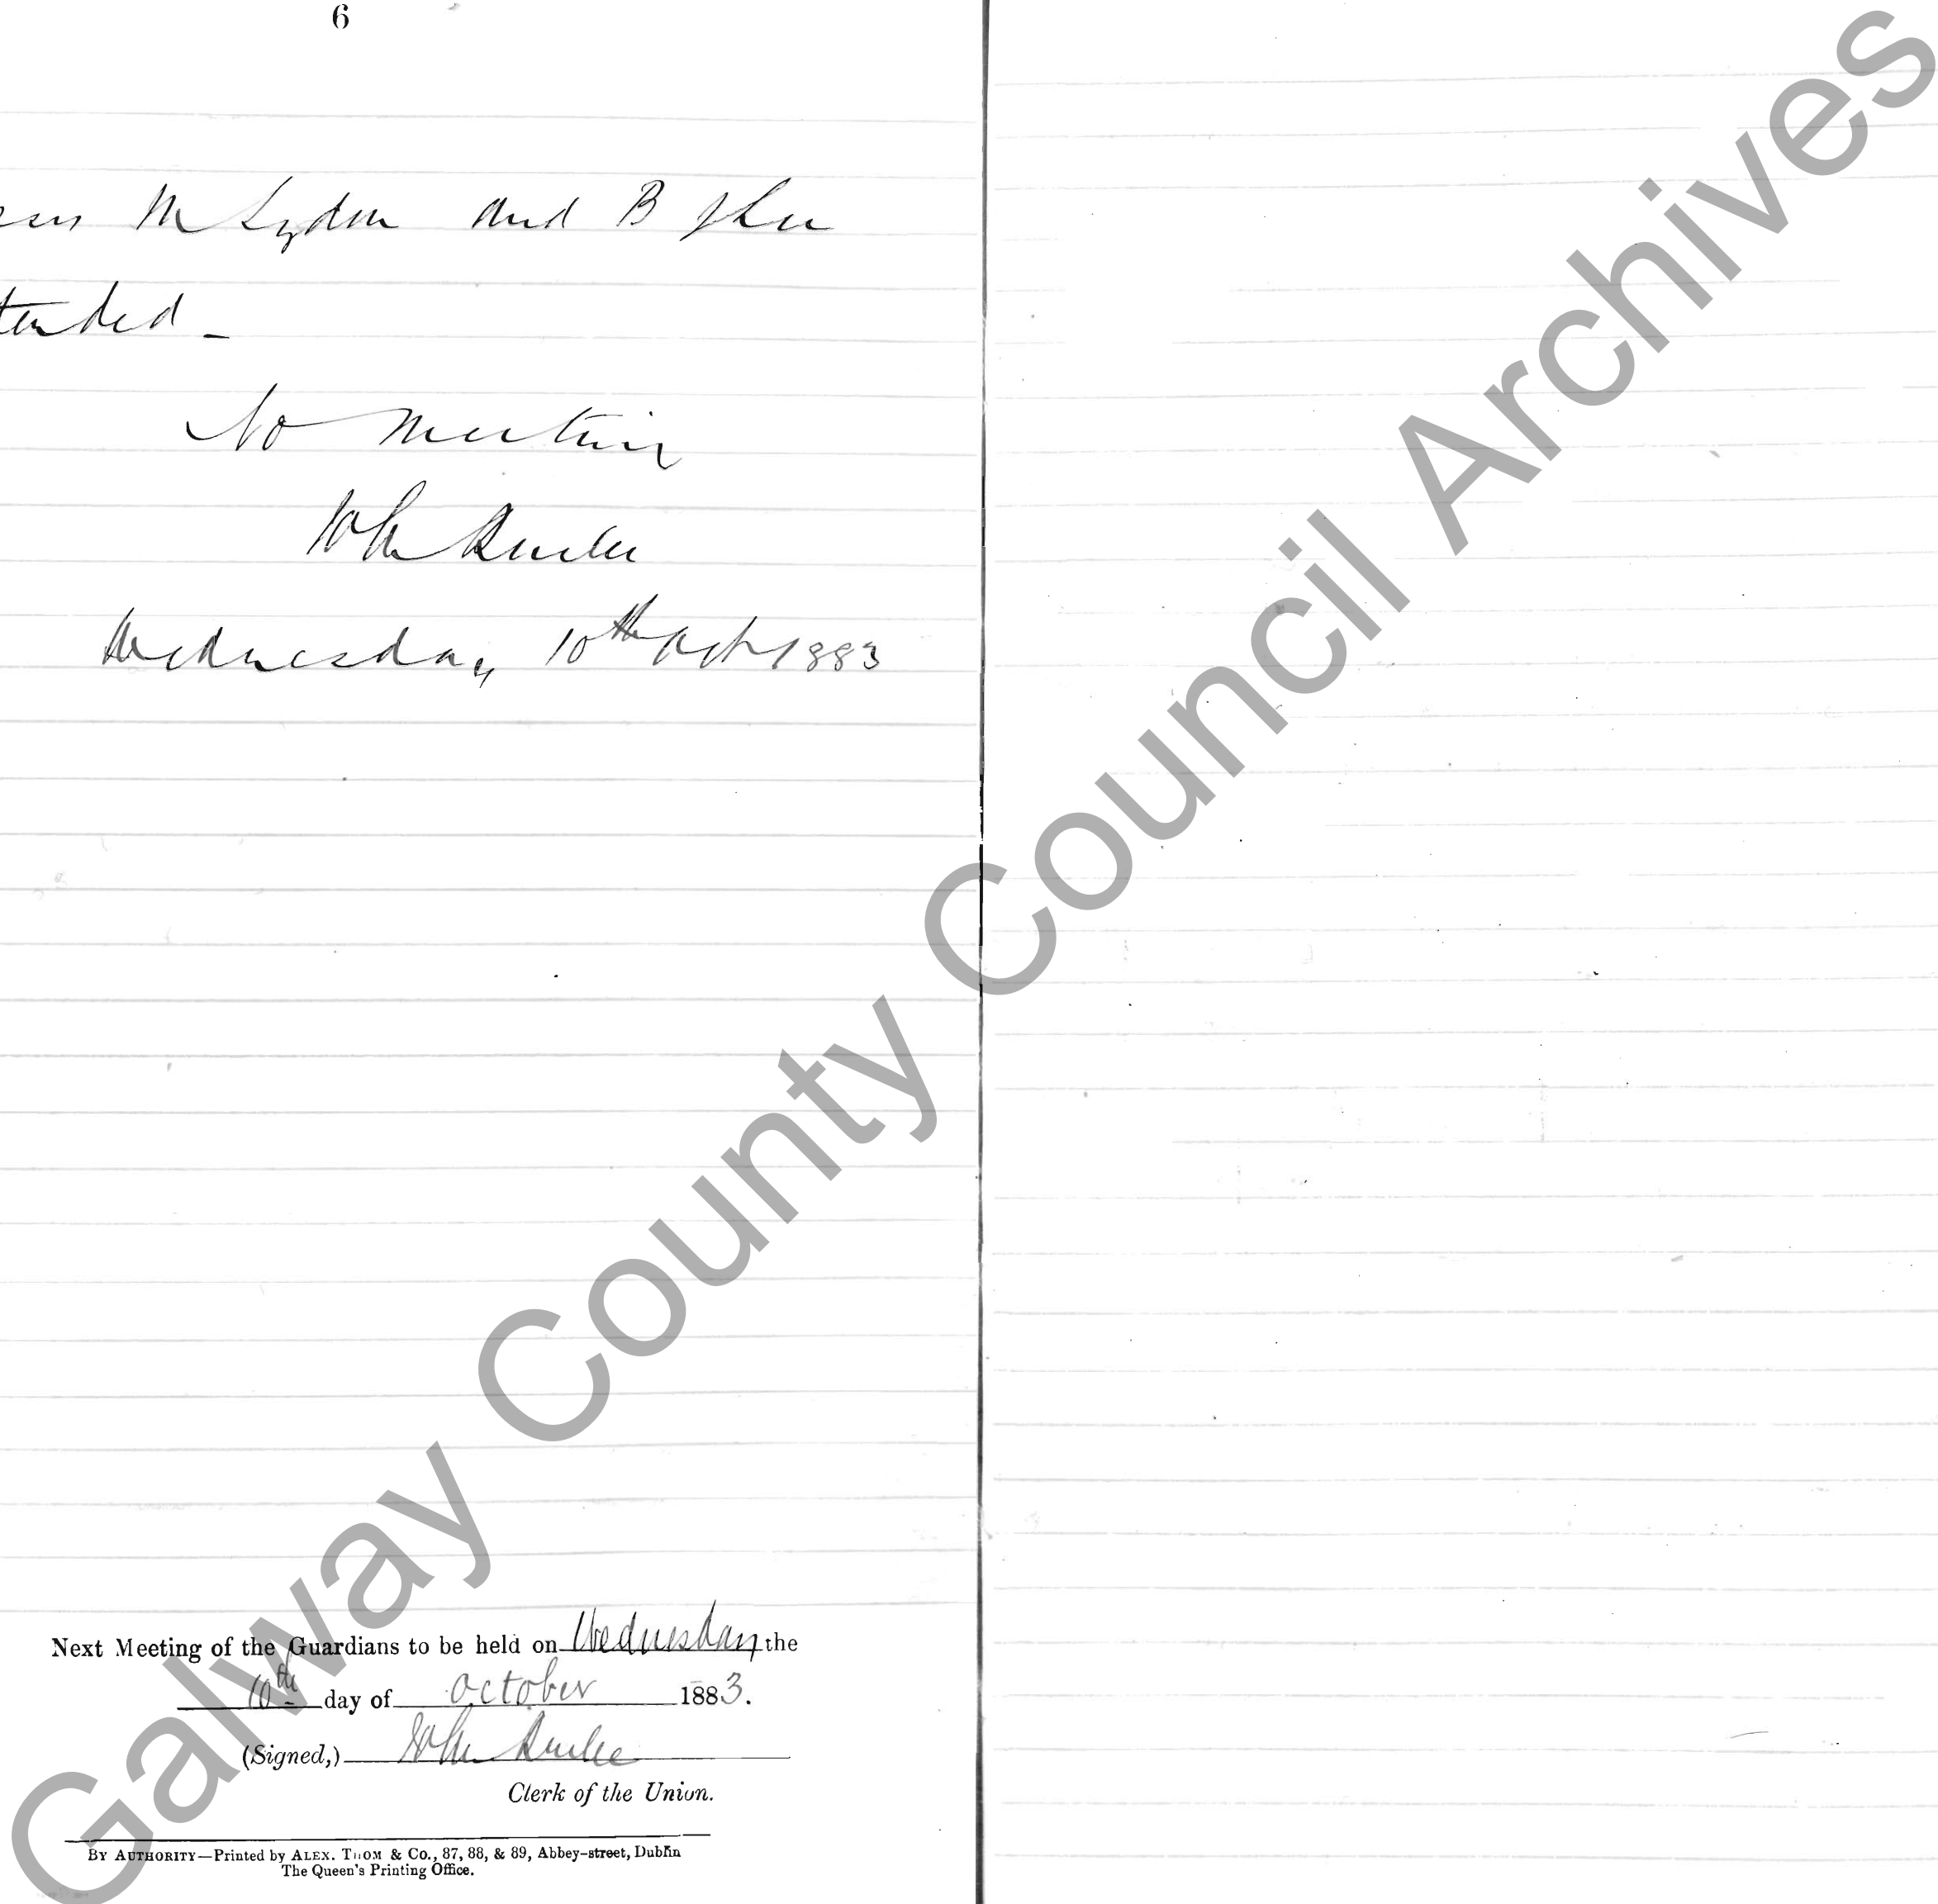 6
M Lydon and B
tended -
No Meeting
John
Wednesday 10th Oct 1883
Next Meeting of the Guardians to be held on Wednesday the
10th day of October 1883.
(Signed,) John
Clerk of the Union.
BY AUTHORITY—Printed by ALEX. THOM & Co., 87, 88, & 89, Abbey-street, Dublin
The Queen's Printing Office.
Galway County Council Archives